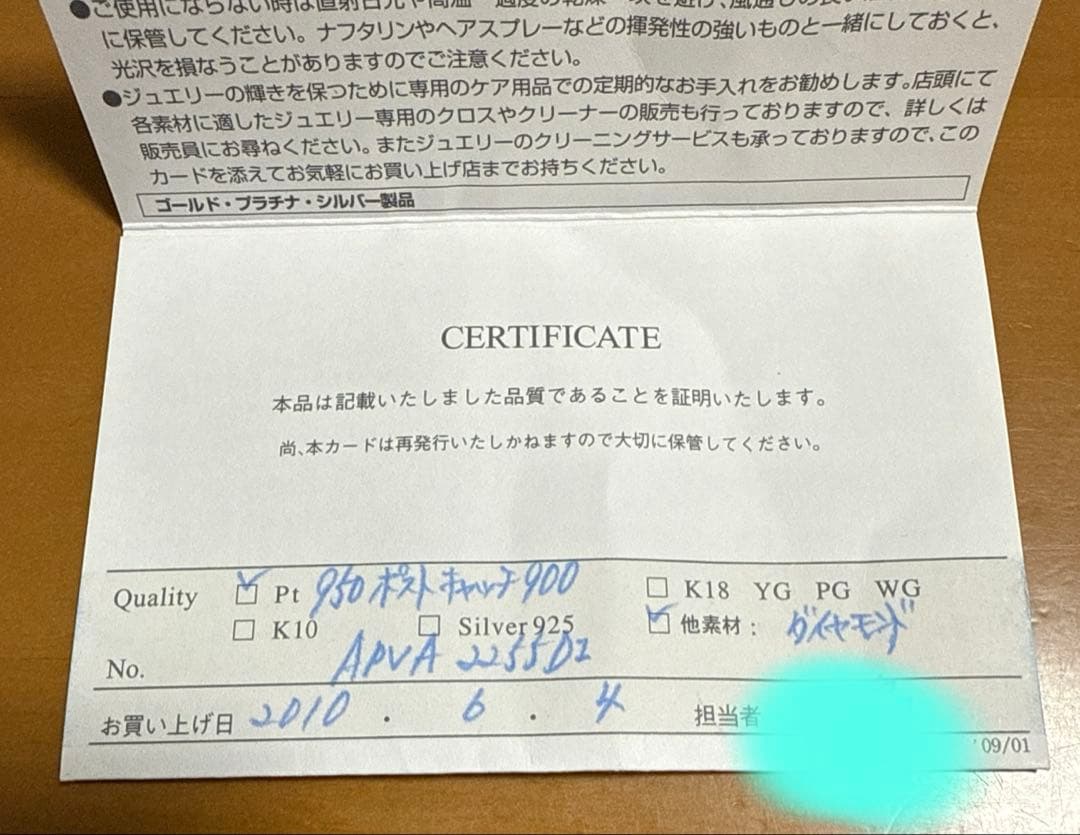 ●ご使用にならない時は直射日光や高温
に保管してください。ナフタリンやヘアスプレーなどの揮発性の強いものと一緒にしておくと、
光沢を損なうことがありますのでご注意ください。
●ジュエリーの輝きを保つために専用のケア用品での定期的なお手入れをお勧めします。店頭にて
各素材に適したジュエリー専用のクロスやクリーナーの販売も行っておりますので、詳しくは
販売員にお尋ねください。またジュエリーのクリーニングサービスも承っておりますので、この
カードを添えてお気軽にお買い上げ店までお持ちください。
ゴールド・プラチナ・シルバー製品
CERTIFICATE
本品は記載いたしました品質であることを証明いたします。
尚、本カードは再発行いたしかねますので大切に保管してください。
Quality Pt 950 ポスト キャッチ 900 K18 YG PG WG
K10 Silver925 他素材: ダイヤモンド
No. APVA 2255DI
お買い上げ日 2010 . 6 . 4 担当者
'09/01